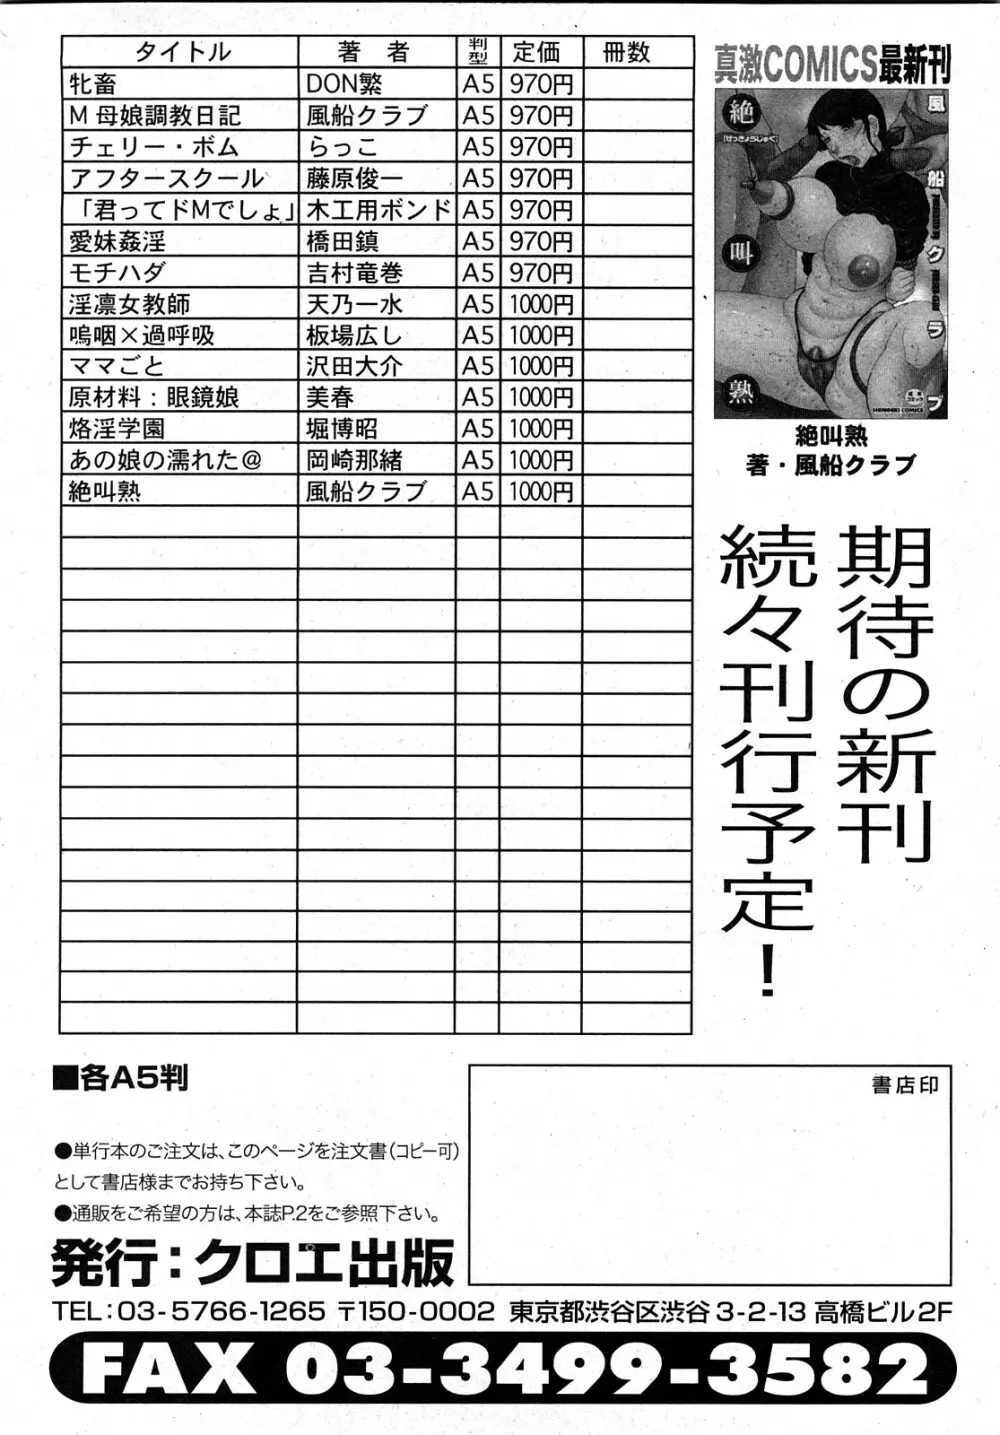 タイトル 著 者 判型 定価 冊数
牝畜 DON繁 A5 970円
M 母娘調教日記 風船クラブ A5 970円
チェリー・ボム らっこ A5 970円
アフタースクール 藤原俊一 A5 970円
「君ってドMでしょ」 木工用ボンド A5 970円
愛妹姦淫 橋田鎮 A5 970円
モチハダ 吉村竜巻 A5 970円
淫凛女教師 天乃一水 A5 1000円
嗚咽×過呼吸 板場広し A5 1000円
ママごと 沢田大介 A5 1000円
原材料：眼鏡娘 美春 A5 1000円
烙淫学園 堀博昭 A5 1000円
あの娘の濡れた@ 岡崎那緒 A5 1000円
絶叫熟 風船クラブ A5 1000円
真激COMICS最新刊
絶叫熟
[ぜっきょうじゅく]
風船クラブ
成年コミック
SHINGEKI COMICS
絶叫熟
著・風船クラブ
期待の新刊
続々刊行予定！
■各A5判
書店印
●単行本のご注文は、このページを注文書（コピー可）
として書店様までお持ち下さい。
●通販をご希望の方は、本誌P.2をご参照下さい。
発行：クロエ出版
TEL：03-5766-1265 〒150-0002 東京都渋谷区渋谷3-2-13 高橋ビル2F
FAX 03-3499-3582